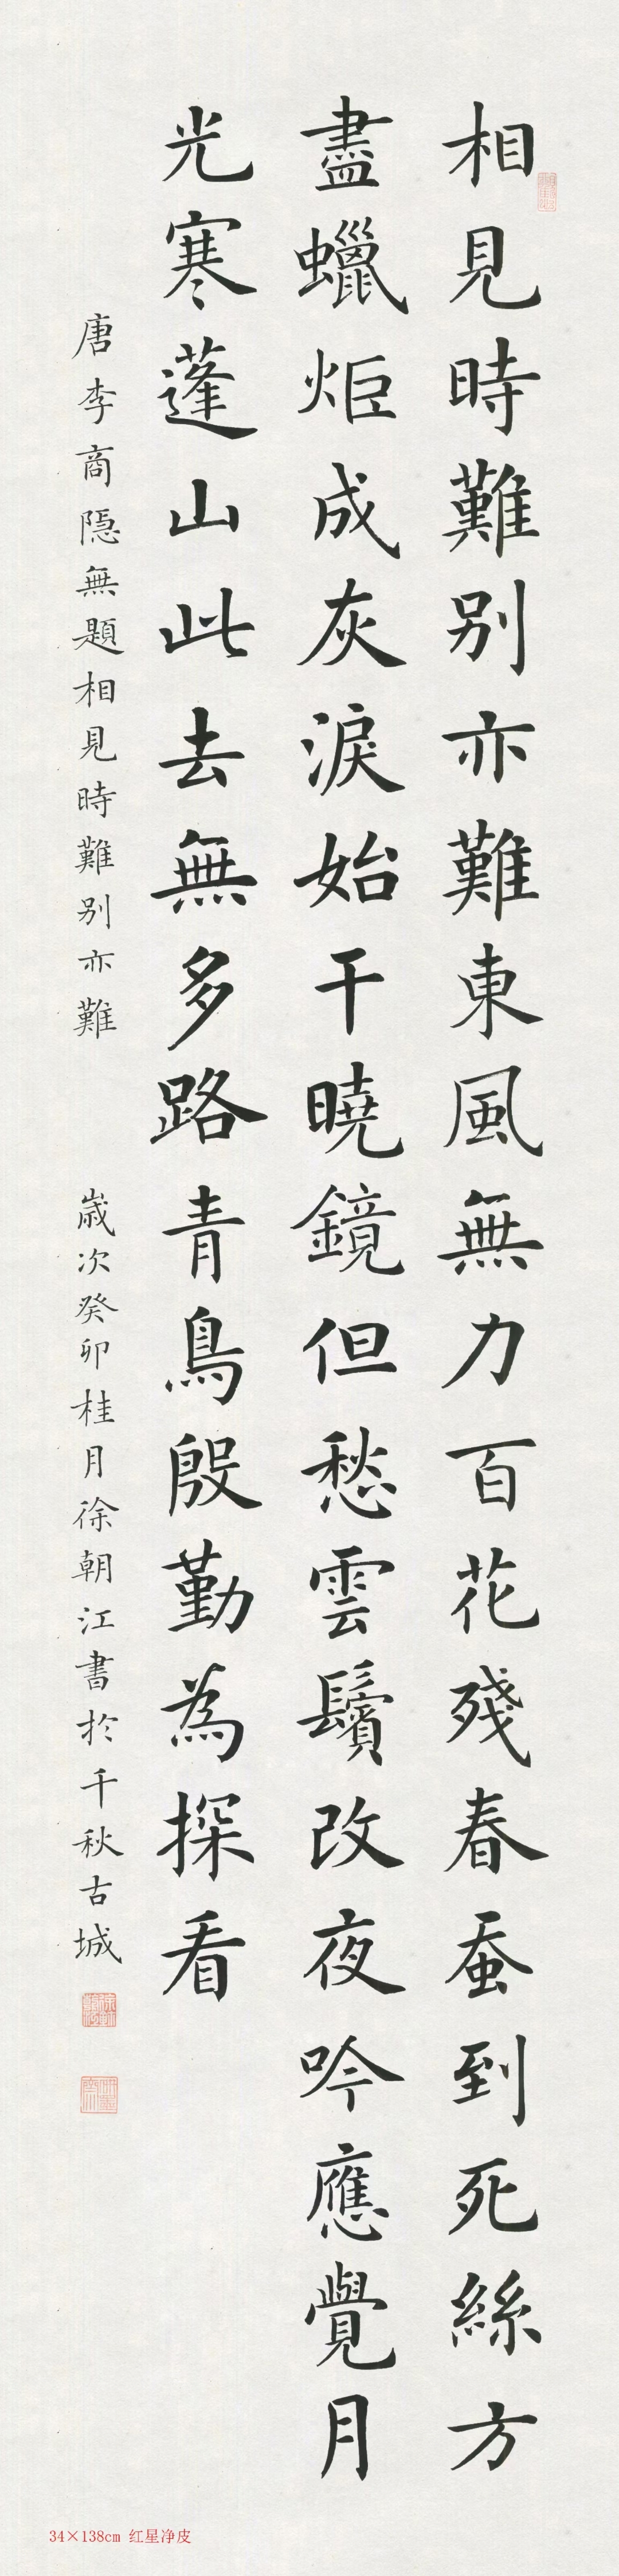 相見時難别亦難東風無力百花殘春蚕到死絲方
盡蠟炬成灰淚始干曉鏡但愁雲鬢改夜吟應覺月
光寒蓬山此去無多路青鳥殷勤為探看
唐李商隱無題相見時難别亦難 歲次癸卯桂月徐朝江書於千秋古城
34×138cm 红星净皮